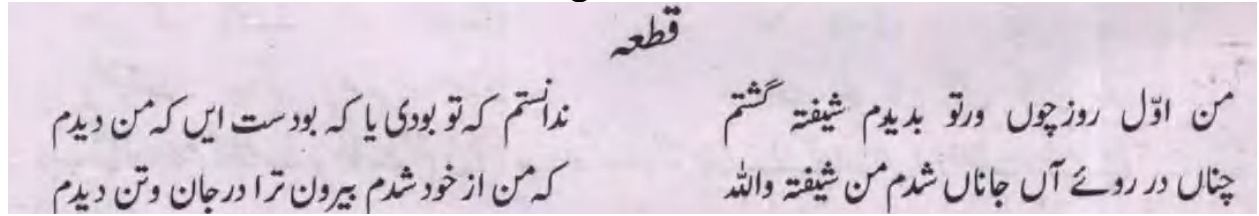 قطعہ
من اوّل روز چوں ورتو بدیدم شیفتہ گشتم ندانستم کہ تو بودی یا کہ بودست ایں کہ من دیدم
چناں در روئے آں جاناں شدم من شیفتہ واللہ کہ من از خود شدم بیرون ترا در جان وتن دیدم